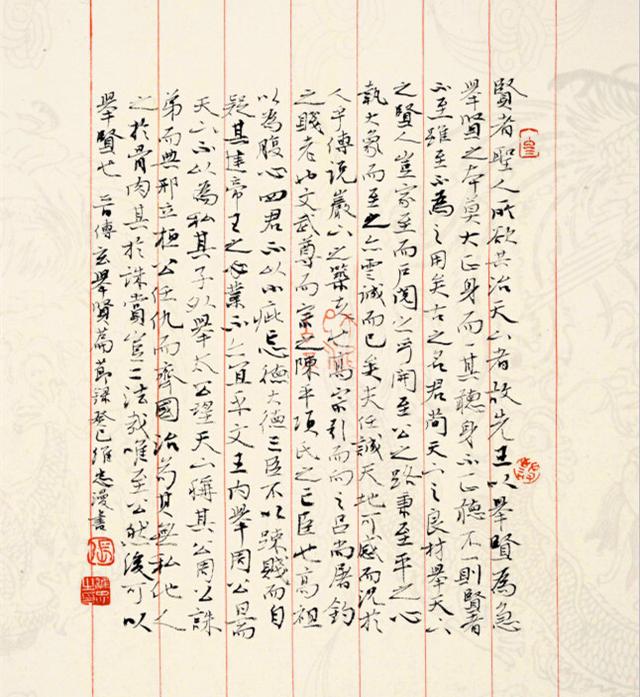 賢者聖人所欲共治天下者故先王以舉賢為急
舉賢之本莫大正身而一其聽身不正聽不一則賢者
不至雖至不為之用矣古之名君簡天下之良材舉天下
之賢人豈家至而戶閱之乎開至公之路秉至平之心
執大象而至之亦云誠而已矣夫任誠天地可感而況於
人乎傅說巖下之築夫也高宗引而相之呂尚屠釣
之賤老也文武尊而宗之陳平項氏之亡臣也高祖
以為腹心四君不以小疵忘德大德三臣不以疎賤而自
疑其建帝王之業不亦宜乎文王內舉周公旦而
天下不以為私其子外舉太公望天下稱其公周公誅
弟而典刑立桓公任仇而齊國治苟其無私他人
之於骨肉其於誅賞豈二法哉唯至公然後可以
舉賢也 晉傅玄舉賢篇節錄癸巳維忠漫書
張